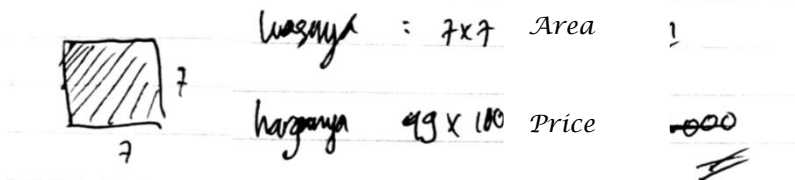 luasnya : 7x7 Area
7
harganya 49 x 100 Price
7